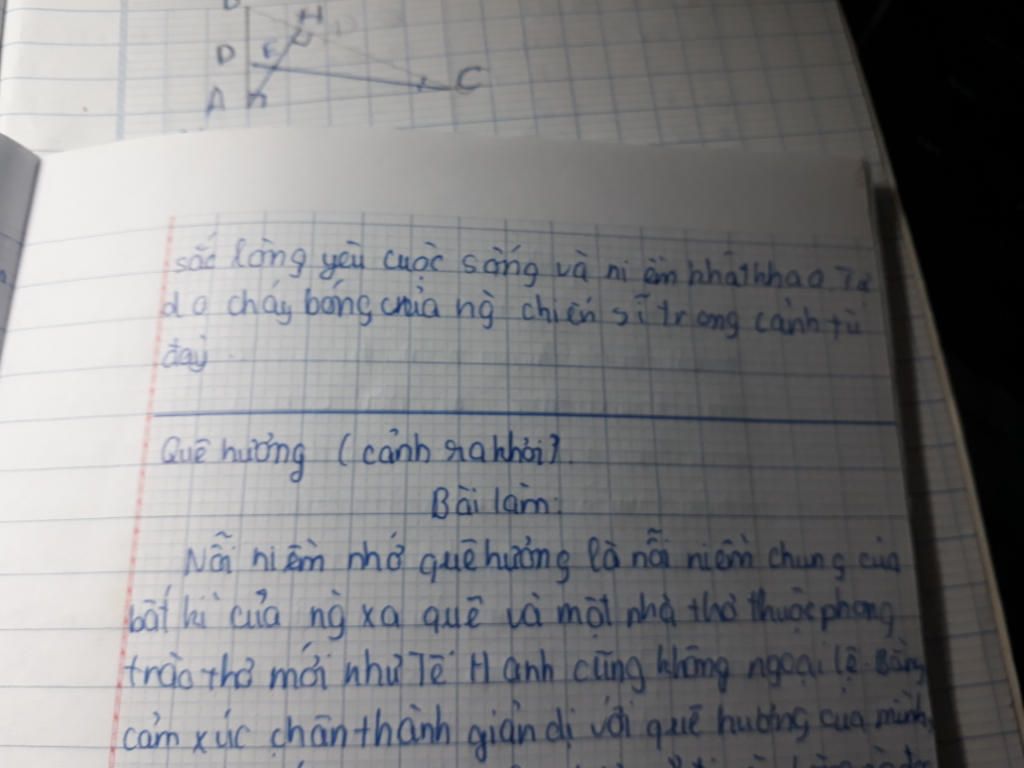 H
D F C
A
sắc lòng yêu cuộc sống và niềm khát khao Tự
do cháy bỏng của ng chiến sĩ trong cảnh tù
đày.
Quê hương (cảnh ra khơi).
Bài làm:
Nỗi niềm nhớ quê hương là nỗi niềm chung của
bất kì của ng xa quê và một nhà thơ thuộc phong
trào thơ mới như Tế Hanh cũng không ngoại lệ. Bằng
cảm xúc chân thành giản dị với quê hương của mình,